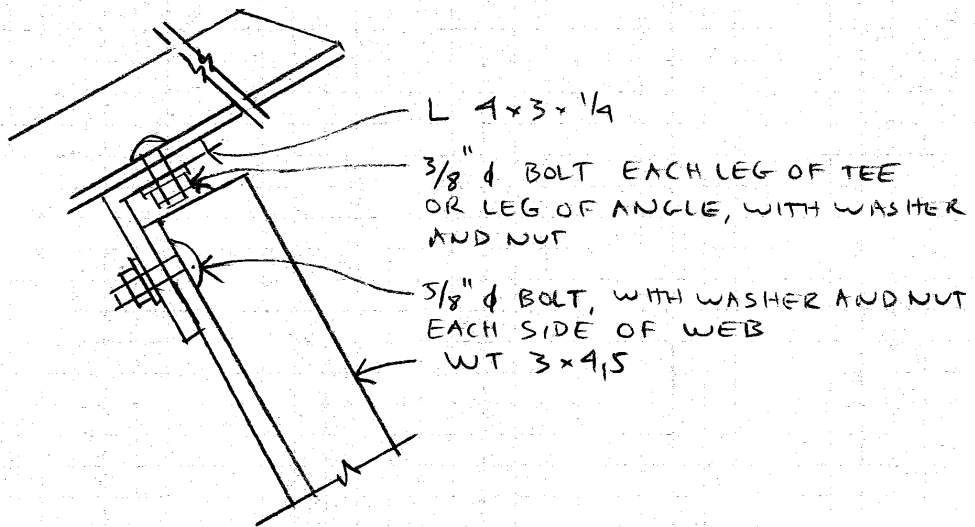 L 4 x 3 x 1/4
3/8" ϕ BOLT EACH LEG OF TEE
OR LEG OF ANGLE, WITH WASHER
AND NUT
5/8" ϕ BOLT, WITH WASHER AND NUT
EACH SIDE OF WEB
WT 3 x 4,5